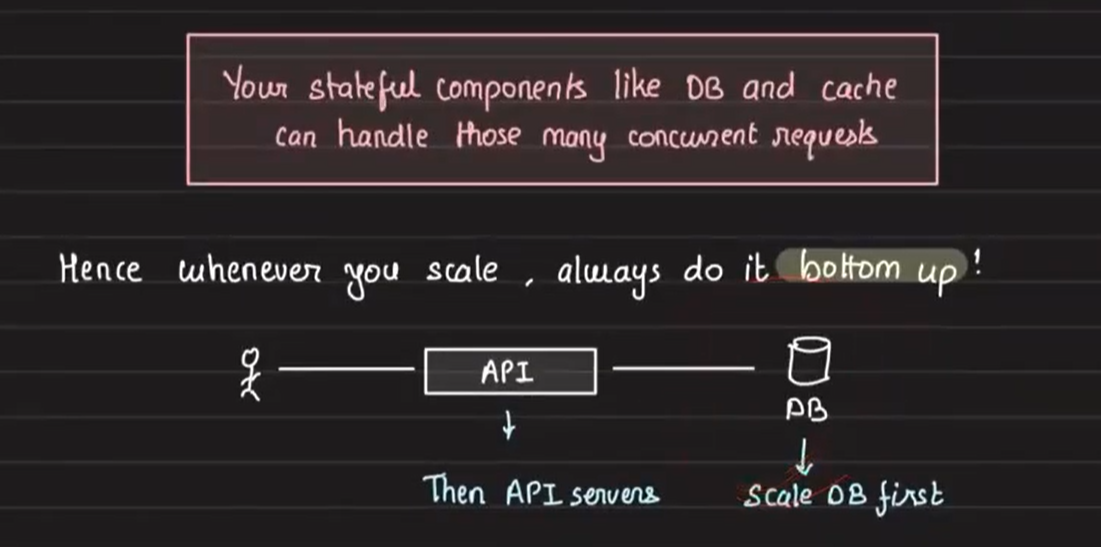 Your stateful components like DB and cache
can handle those many concurrent requests
Hence whenever you scale, always do it bottom up!
API
DB
Then API servers
Scale DB first